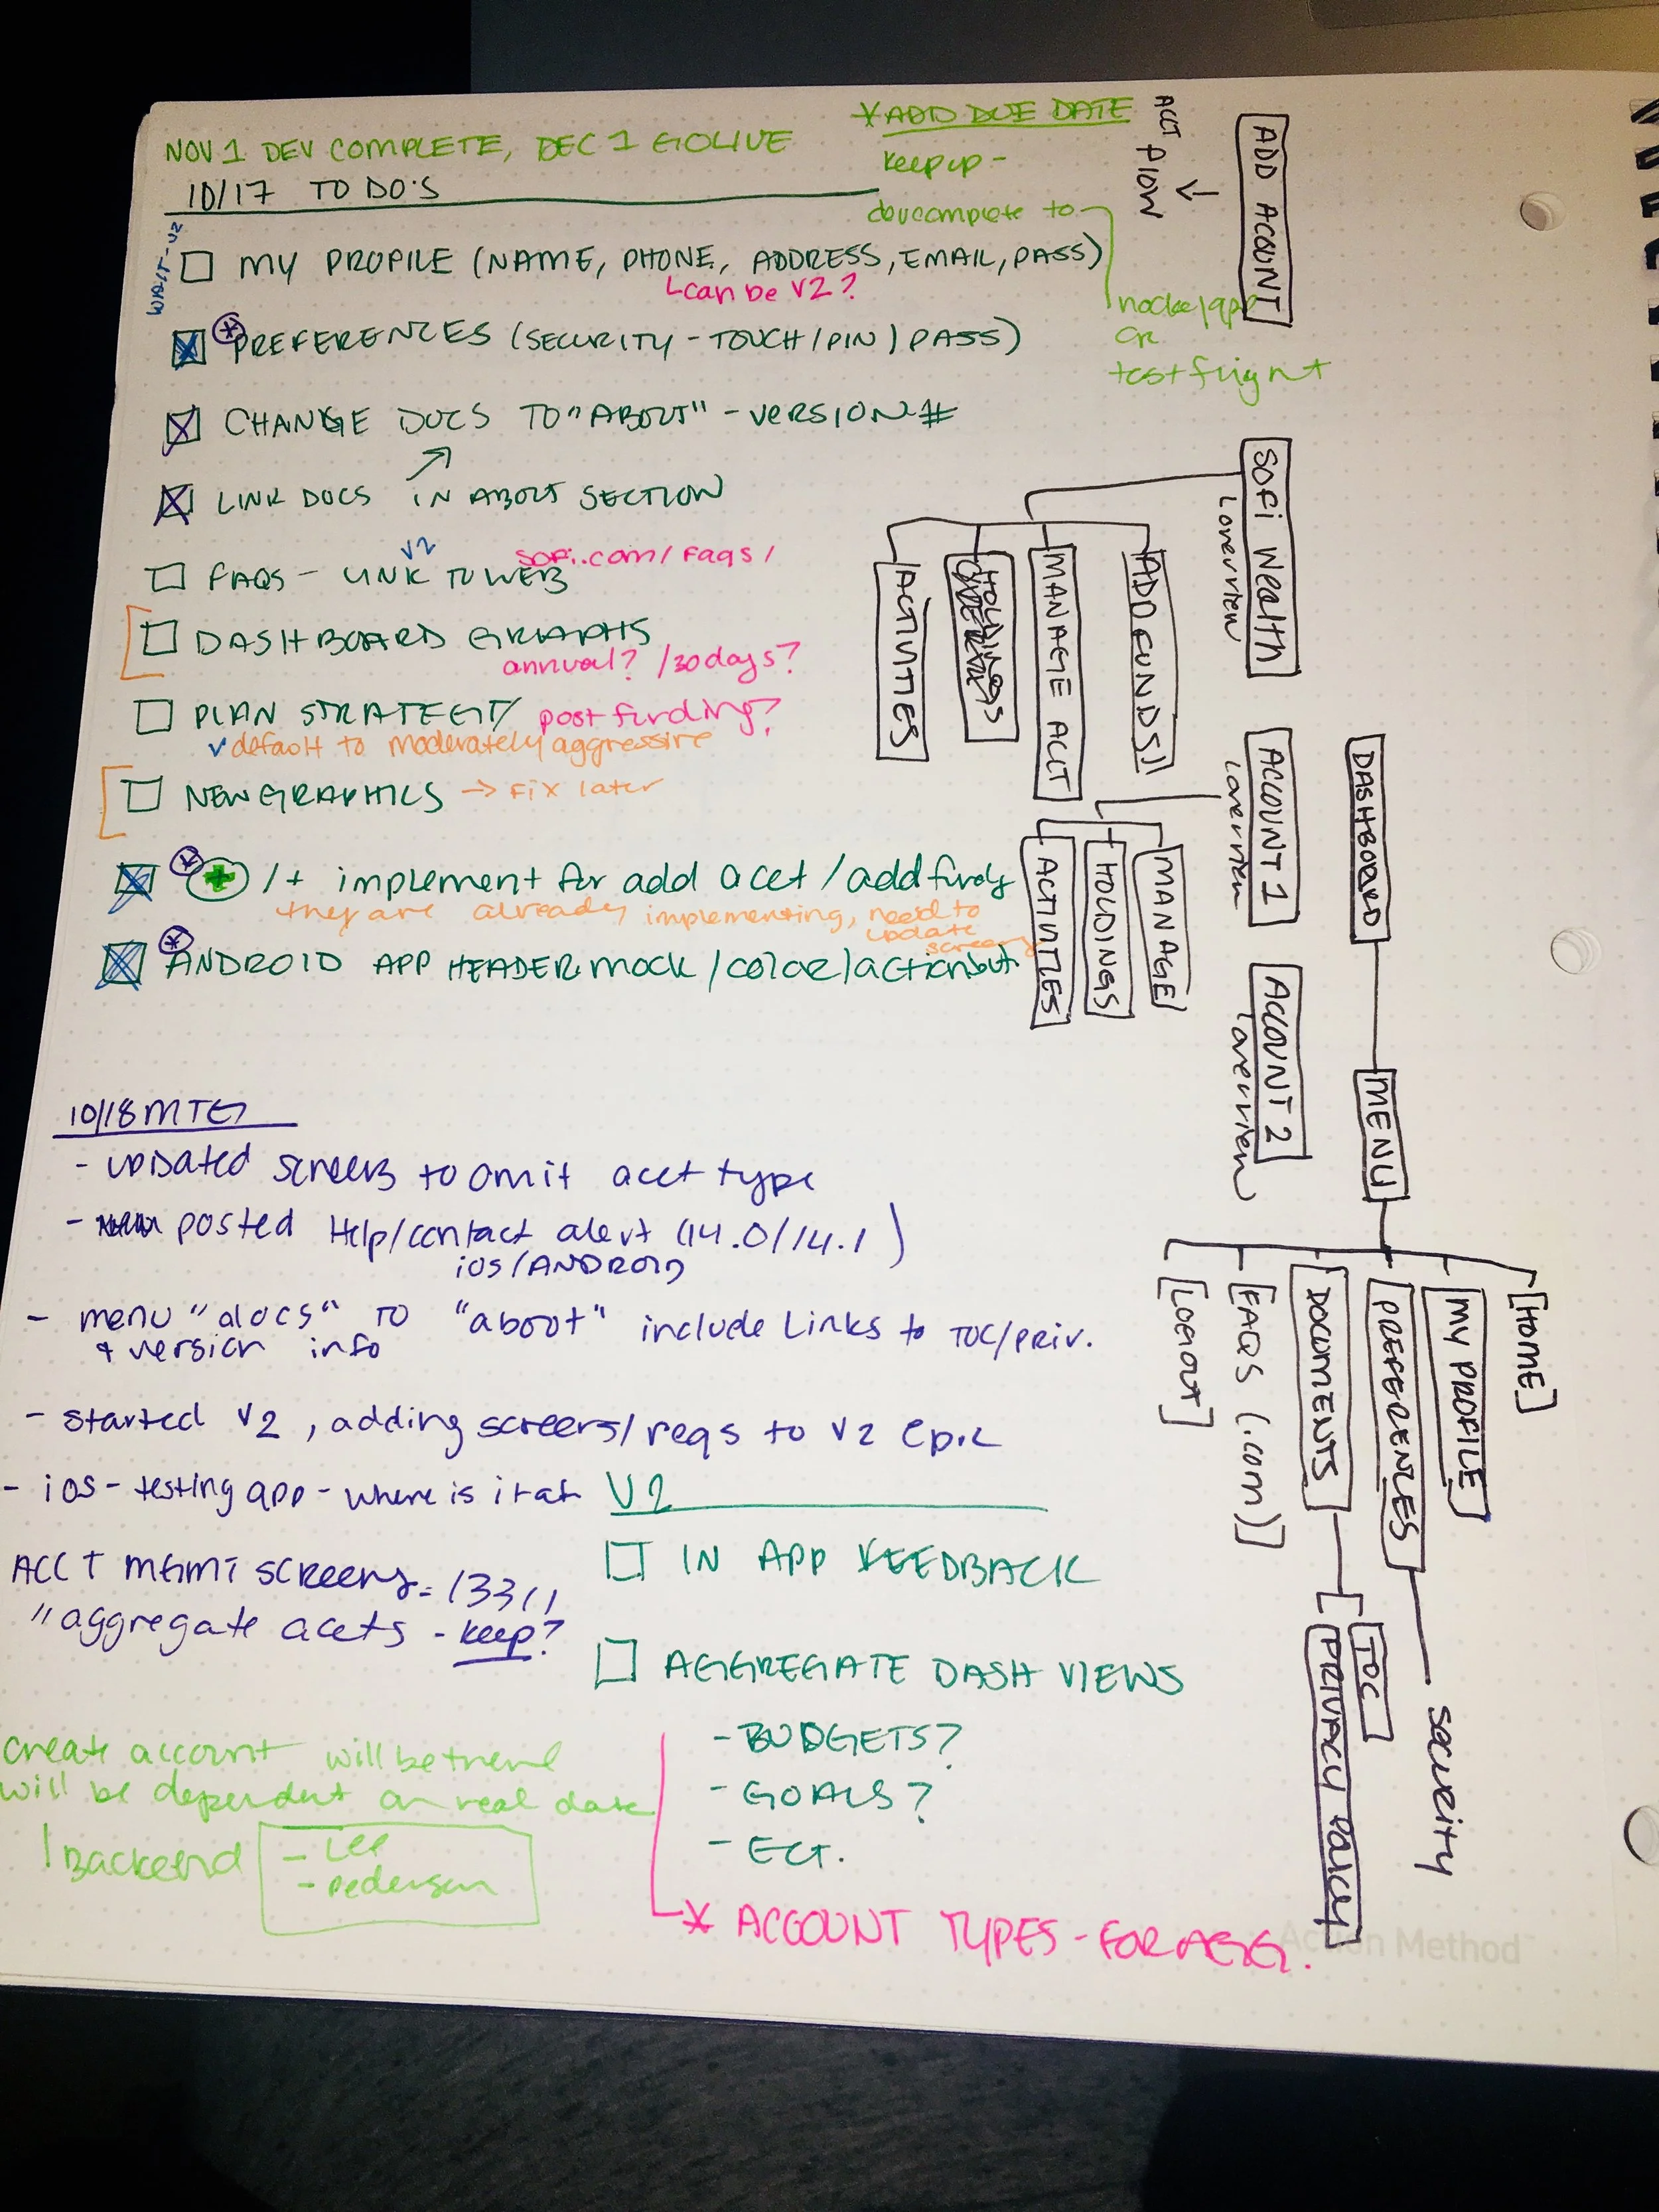 NOV 1 DEV COMPLETE, DEC 1 GOLIVE
*ADD DUE DATE
keep up -
devcomplete to
or
test flight
10/17 TO DO'S
WAIT-V2
MY PROFILE (NAME, PHONE, ADDRESS, EMAIL, PASS)
can be V2?
PREFERENCES (SECURITY - TOUCH/PIN/PASS)
CHANGE DOCS TO "ABOUT" - VERSION #
LINK DOCS IN ABOUT SECTION
V2
FAQS - LINK TO WEB
sofi.com/faqs/
DASHBOARD GRAPHS
annual? /30days?
PLAN STRATEGY/ post funding?
default to moderately aggressive
NEW GRAPHICS → Fix later
+ /+ implement for add acct /add funds
they are already implementing, need to
update
screens
ANDROID APP HEADER mock/color/action but.
10/18 MTG
- UPDATED screens to omit acct type
- posted Help/contact alert (14.0/14.1)
ios/ANDROID
- menu "docs" TO "about" include Links to TOC/priv.
+ version info
- started V2, adding screens/reqs to V2 Epic
- ios - testing app - where is it at
ACCT MGMT SCREENS =
" aggregate accts - keep?
V2
IN APP FEEDBACK
AGGREGATE DASH VIEWS
- BUDGETS?
- GOALS?
- ECT.
* ACCOUNT TYPES - FOR AGG.
create account will be
will be dependent on real data
Backend
- Lee
- pedersen
ADD ACOUNT
ACCT FLOW
SOFI Wealth
overview
ADD FUNDS
MANAGE ACCT
HOLDINGS
ACTIVITIES
ACCOUNT 1
overview
MANAGE
HOLDINGS
ACTIVITIES
ACCOUNT 2
overview
DASHBOARD
MENU
[HOME]
MY PROFILE
PREFERENCES
security
DOCUMENTS
TOC
PRIVACY POLICY
[FAQS (.com)]
[LOGOUT]
Action Method